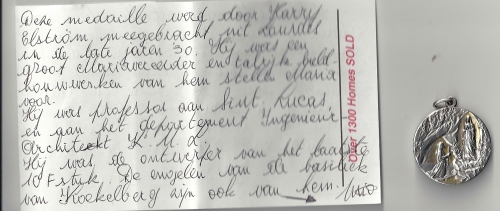 Deze medaille werd door Harry
Elström meegebracht uit Lourdes
in de late jaren 30. Hij was een
groot Mariavereerder en talrijke beeld-
houwwerken van hem stellen Maria
voor.
Hij was professor aan Sint Lucas,
en aan het departement Ingenieur-
Architect K.M.A.
Hij was de ontwerper van het laatste
10 F stuk. De engelen van de basiliek
van Koekelberg zijn ook van hem.
Over 1300 Homes SOLD